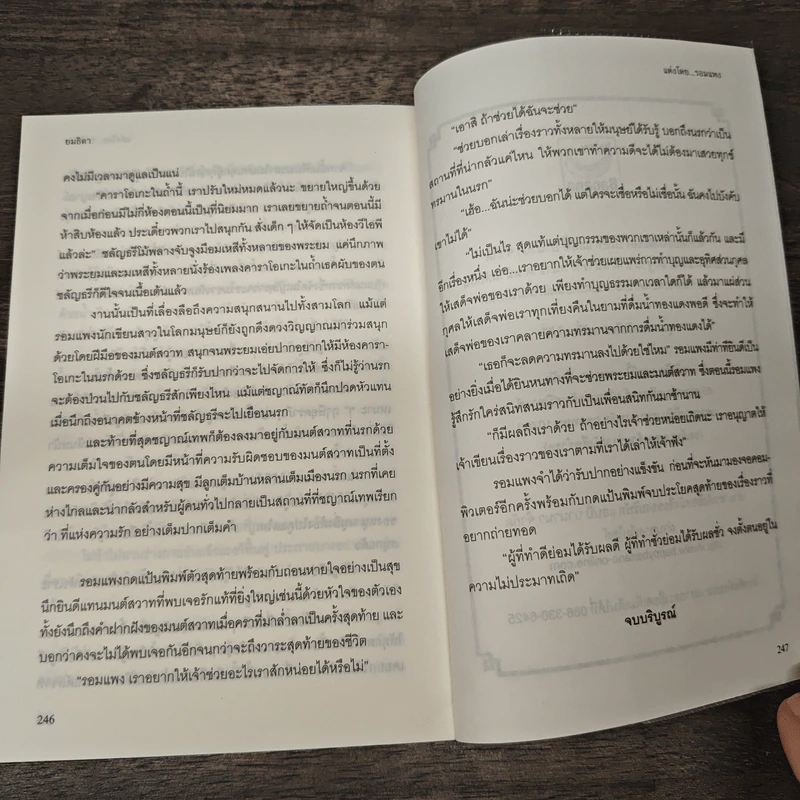 ยมธิดา
คงไม่มีเวลามาดูแลเป็นแน่
“คาราโอเกะในถ้ำนี้ เราปรับใหม่หมดแล้วนะ ขยายใหญ่ขึ้นด้วย
จากเมื่อก่อนมีไม่กี่ห้องตอนนี้เป็นที่นิยมมาก เราเลยขยายถ้ำจนตอนนี้มี
ห้าสิบห้องแล้ว ประเดี๋ยวพวกเราไปสนุกกัน สั่งเด็ก ๆ ให้จัดเป็นห้องวีไอพี
แล้วล่ะ” ชลัญธรีโม้พลางจับจูงมือมเหสีทั้งหลายของพระยม แค่นึกภาพ
ว่าพระยมและมเหสีทั้งหลายนั่งร้องเพลงคาราโอเกะในถ้ำเธคผับของตน
ชลัญธรีก็ดีใจจนเนื้อเต้นแล้ว
งานนั้นเป็นที่เลื่องลือถึงความสนุกสนานไปทั้งสามโลก แม้แต่
รอมแพงนักเขียนสาวในโลกมนุษย์ก็ยังถูกดึงดวงวิญญาณมาร่วมสนุก
ด้วยโดยฝีมือของมนต์สวาท สนุกจนพระยมเอ่ยปากอยากให้มีห้องคารา-
โอเกะในนรกด้วย ซึ่งชลัญธรีก็รับปากว่าจะไปจัดการให้ ซึ่งก็ไม่รู้ว่านรก
จะต้องป่วนไปกับชลัญธรีสักเพียงไหน แม้แต่ชญาณ์ทัตก็นึกปวดหัวแทน
เมื่อนึกถึงอนาคตข้างหน้าที่ชลัญธรีจะไปเยือนนรก
และท้ายที่สุดชญาณ์เทพก็ต้องลงมาอยู่กับมนต์สวาทที่นรกด้วย
ความเต็มใจของตนโดยมีหน้าที่ความรับผิดชอบของมนต์สวาทเป็นที่ตั้ง
และครองคู่กันอย่างมีความสุข มีลูกเต็มบ้านหลานเต็มเมืองนรก นรกที่เคย
ห่างไกลและน่ากลัวสำหรับผู้คนทั่วไปกลายเป็นสถานที่ที่ชญาณ์เทพเรียก
ว่า ที่แห่งความรัก อย่างเต็มปากเต็มคำ
รอมแพงกดแป้นพิมพ์ตัวสุดท้ายพร้อมกับถอนหายใจอย่างเป็นสุข
นึกยินดีแทนมนต์สวาทที่พบเจอรักแท้ที่ยิ่งใหญ่เช่นนี้ด้วยหัวใจของตัวเอง
ทั้งยังนึกถึงคำฝากฝังของมนต์สวาทเมื่อคราที่มาล่ำลาเป็นครั้งสุดท้าย และ
บอกว่าคงจะไม่ได้พบเจอกันอีกจนกว่าจะถึงวาระสุดท้ายของชีวิต
“รอมแพง เราอยากให้เจ้าช่วยอะไรเราสักหน่อยได้หรือไม่”
246
แต่งโดย...รอมแพง
“เอาสิ ถ้าช่วยได้ฉันจะช่วย”
“ช่วยบอกเล่าเรื่องราวทั้งหลายให้มนุษย์ได้รับรู้ บอกถึงนรกว่าเป็น
สถานที่ที่น่ากลัวแค่ไหน ให้พวกเขาทำความดีจะได้ไม่ต้องมาเสวยทุกข์
ทรมานในนรก”
“เฮ้อ...ฉันน่ะช่วยบอกได้ แต่ใครจะเชื่อหรือไม่เชื่อนั้น ฉันคงไปบังคับ
เขาไม่ได้”
“ไม่เป็นไร สุดแท้แต่บุญกรรมของพวกเขาเหล่านั้นก็แล้วกัน และมี
อีกเรื่องหนึ่ง เอ่อ...เราอยากให้เจ้าช่วยเผยแพร่การทำบุญและอุทิศส่วนกุศล
ให้เสด็จพ่อของเราด้วย เพียงทำบุญธรรมดาเวลาใดก็ได้ แล้วมาแผ่ส่วน
กุศลให้เสด็จพ่อเราทุกเที่ยงคืนในยามที่ดื่มน้ำทองแดงพอดี ซึ่งจะทำให้
เสด็จพ่อของเราคลายความทรมานจากการดื่มน้ำทองแดงได้”
“เธอก็จะลดความทรมานลงไปด้วยใช่ไหม” รอมแพงมีท่าทียินดีเป็น
อย่างยิ่งเมื่อได้ยินหนทางที่จะช่วยพระยมและมนต์สวาท ซึ่งตอนนี้รอมแพง
รู้สึกรักใคร่สนิทสนมราวกับเป็นเพื่อนสนิทกันมาช้านาน
“ก็มีผลถึงเราด้วย ถ้าอย่างไรเจ้าช่วยหน่อยเถิดนะ เราอนุญาตให้
เจ้าเขียนเรื่องราวของเราตามที่เราได้เล่าให้เจ้าฟัง”
รอมแพงจำได้ว่ารับปากอย่างแข็งขัน ก่อนที่จะหันมามองจอคอม-
พิวเตอร์อีกครั้งพร้อมกับกดแป้นพิมพ์จบประโยคสุดท้ายของเรื่องราวที่
อยากถ่ายทอด
“ผู้ที่ทำดีย่อมได้รับผลดี ผู้ที่ทำชั่วย่อมได้รับผลชั่ว จงตั้งตนอยู่ใน
ความไม่ประมาทเถิด”
จบบริบูรณ์
247